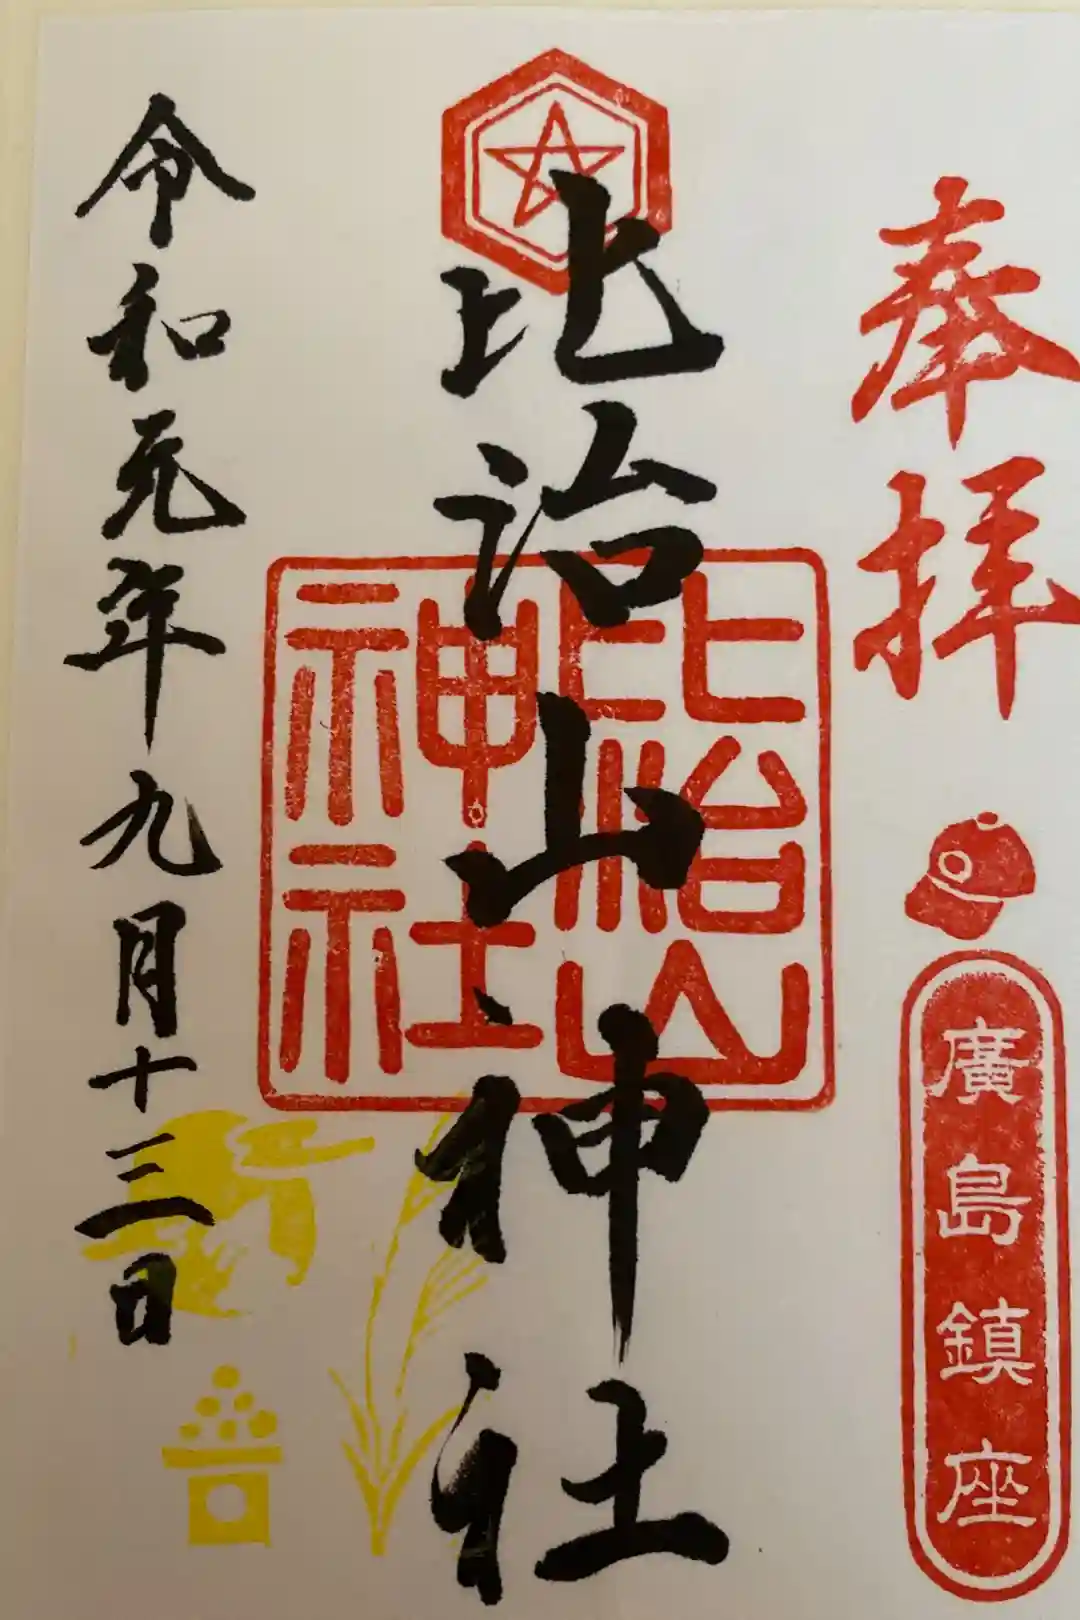 奉拝
廣島鎮座
比治山神社
比治山神社
令和元年九月十三日